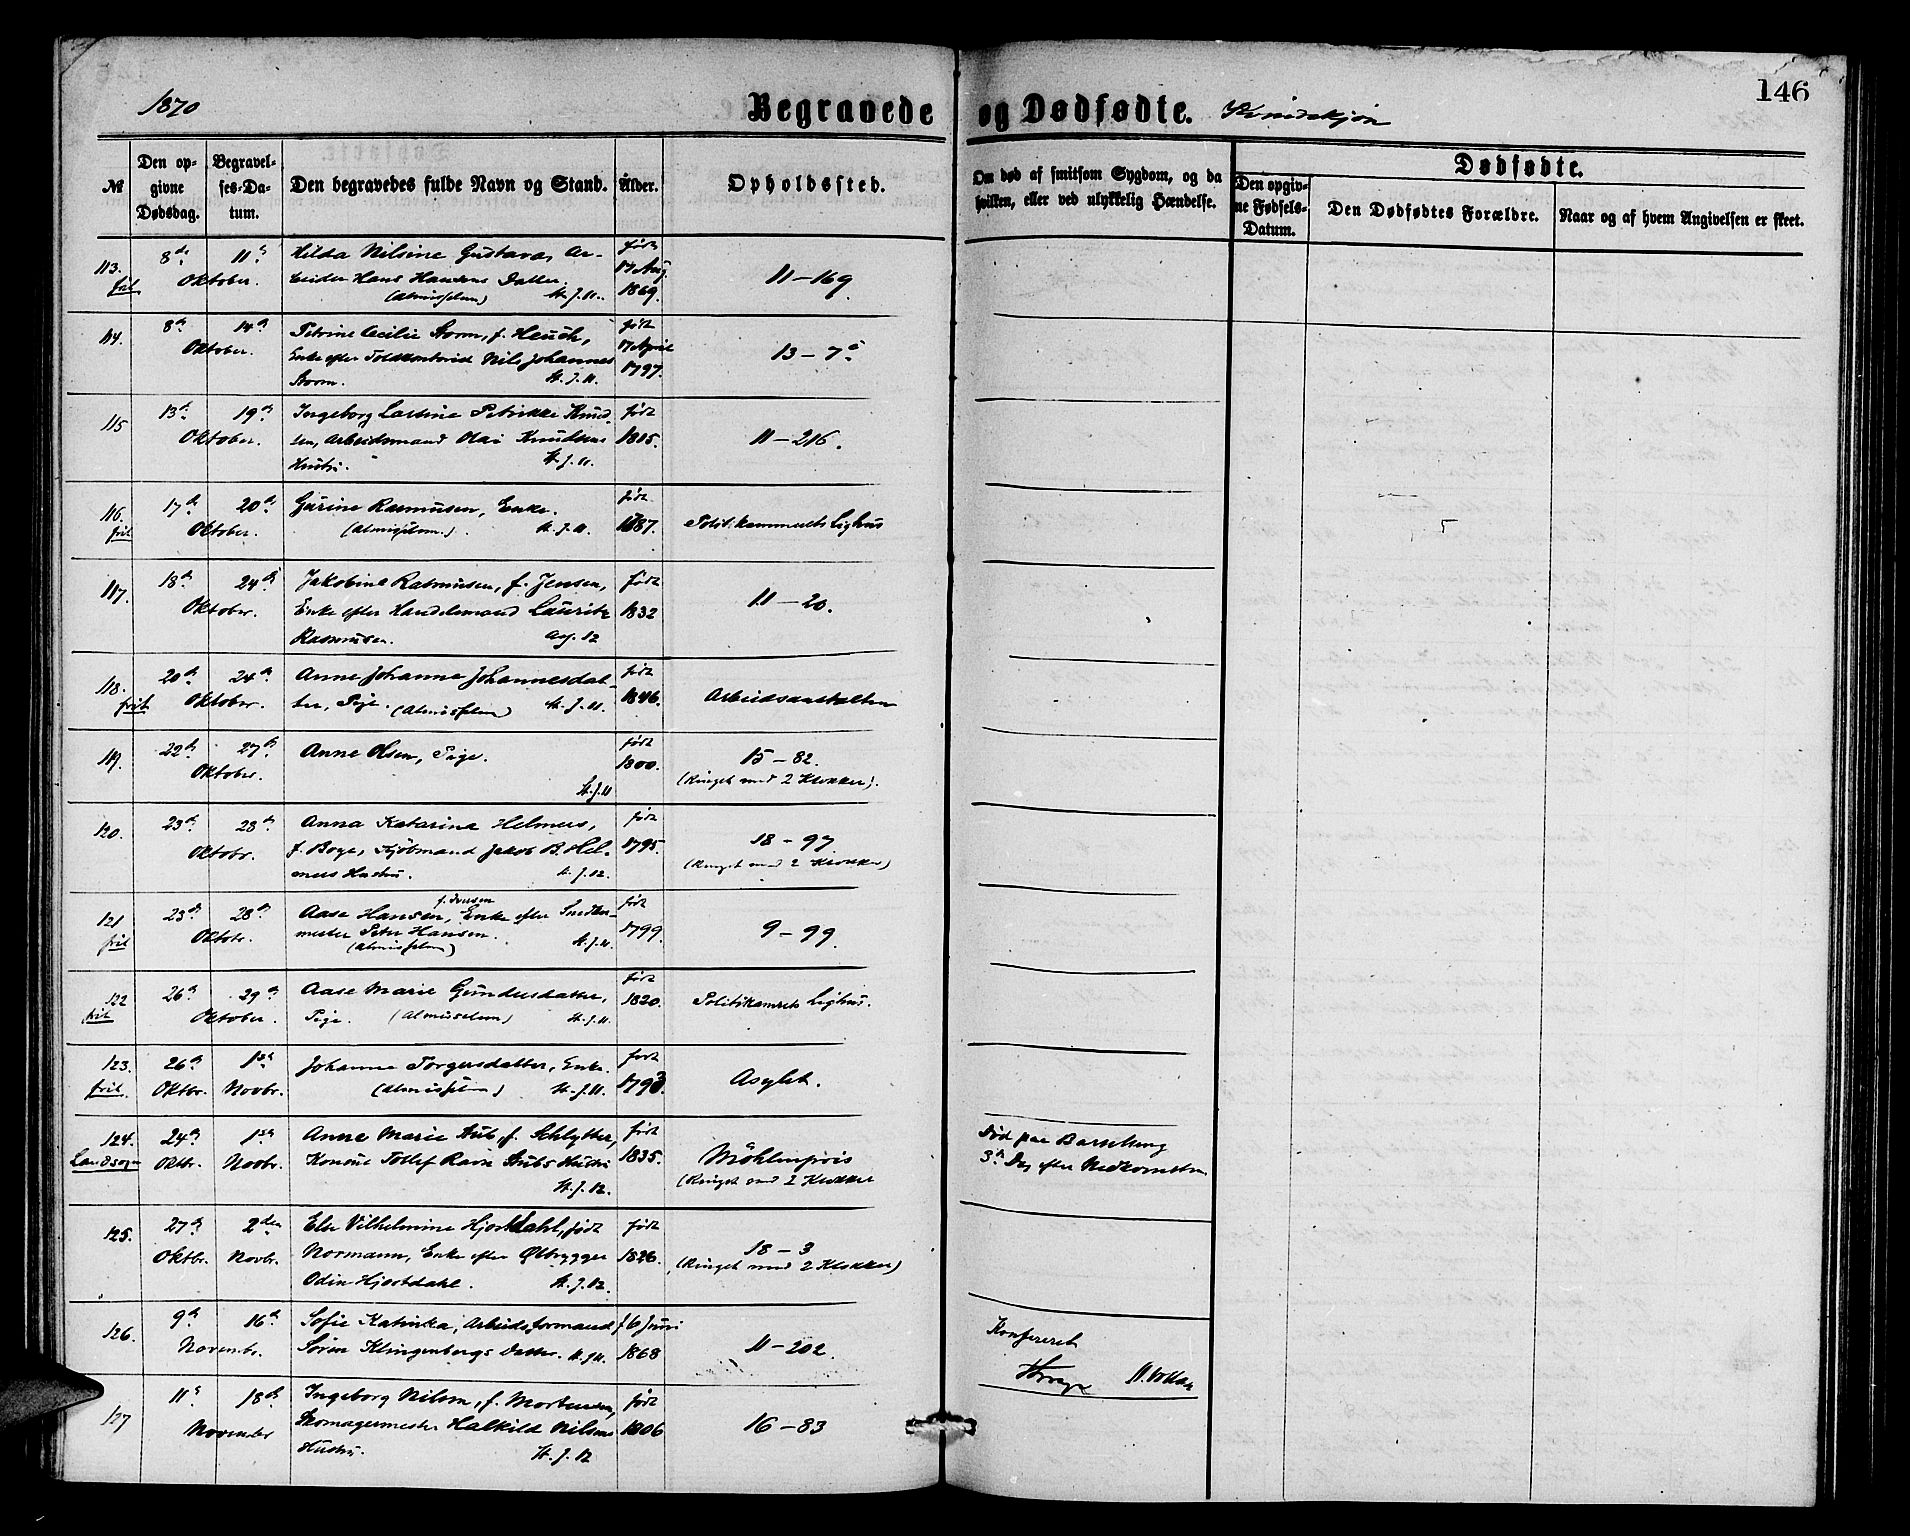 1870 Begravede og Dødfødte. Kvindekjøn 146
№ Den opgivne Dødsdag. Begravelses-Datum. Den begravedes fulde Navn og Stand. Alder. Opholdssted. Om død af smitsom Sygdom, og da hvilken, eller ved ulykkelig Hændelse. Dødfødte. Den opgivne Fødsels-Datum. Den Dødfødtes Forældre. Naar og af hvem Angivelsen er skeet.
113. 8de 11te Hilda Nilsine Gustava, Ar- født
frit Oktober. beider Hans Hansens Datter 17 Aug. 11-169.
(Almisselem) St. J. 11. 1869.
114. 8de 14de Petrine Cecilie Storm, f. Heuch, født
Oktober. Enke efter Toldkontorist Nils Johannes 17 April 13-7
Storm. St. J. 11. 1797.
115 13de 19de Ingeborg Lartine Petrikke Knud- født
Oktober. sen, Arbeidsmand Olai Knudsens 1805. 11-216.
Hustru. St. J. 11.
116. 17de 20de Gurine Rasmusen, Enke. født
frit Oktober. (Almisselem.) St. J. 11. 1787. Politikammerets Lighus
117. 18de 24de Jakobine Rasmusen, f. Jensen, født
Oktober. Enke efter Handelsmand Lauritz 1832 11-20.
Rasmusen. 12
118. 20de 24de Anne Johanne Johannesdat- født
frit Oktober. ter, Pige. (Almisselem) St. J. 11. 1846. Arbeidsanstalten
119. 22de 27de Anne Olsen, Pige. født
Oktober. 1800. 15-82.
St. J. 11 (Ringet med 2 Klokker).
120. 23de 28de Anna Katarina Helmers, født
Oktobr. f. Boye, Kjøbmand Jakob B. Hel- 1795. 18-97
mers Hustru. St. J. 12. (Ringet med 2 Klokker)
121 23de 28de Aase Hansen, f. Iversen Enke efter Snedker- født
frit Oktobr. mester Peter Hansen. 1799. 9-99.
(Almisselem) St. J. 11.
122 26de 29de Aase Marie Gundersdatter, født
frit Oktober. Pige. (Almisselem) St. J. 11. 1820. Politikamrets Lighus.
123. 26de 1ste Johanne Torgersdatter, Enke. født
frit. Oktbr. Novbr. (Almisselem) St. J. 11. Asylet.
124. 24de 1ste Anne Marie Aub, f. Schlytter, født Død paa Barselseng
Landsogn Oktbr. Novbr. Tollef Ravn Aubs Hustru 1835. Möhlenpris 3de Dag efter Nedkomsten
St. J. 12. (Ringet med 2 Klokker
125. 27de 2den Else Vilhelmine Hjortdahl, født født
Oktbr. Novbr. Normann, Enke efter Ølbrygger 1826. 18-3
Odin Hjortdahl. St. J. 12. (Ringet med 2 Klokker)
126. 9de 16de Sofie Katinka, Arbeidsformand f 6 Juni Konfereret
Novembr. Søren Klingenbergs Datter. St. J. 11. 1868 11-202.
127 11te 18de Ingeborg Nilsen, f. Mortensen, født
November Skomagermester Halkild Nilsens 1806 16-83
Hustru. St. J. 12